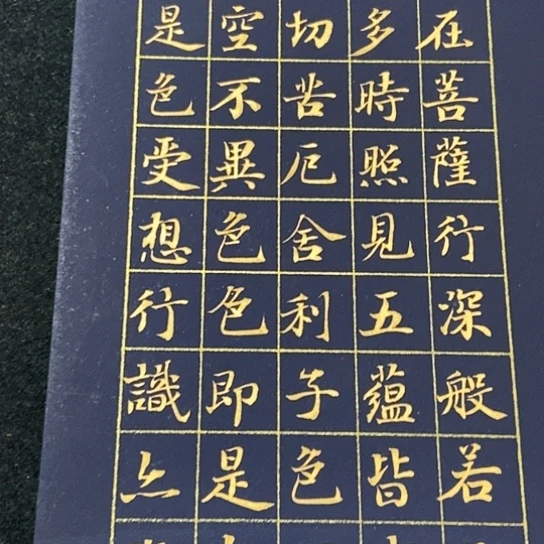 在菩薩行深般若
多時照見五蘊皆
切苦厄舍利子色
空不異色色即是
是色受想行識亦